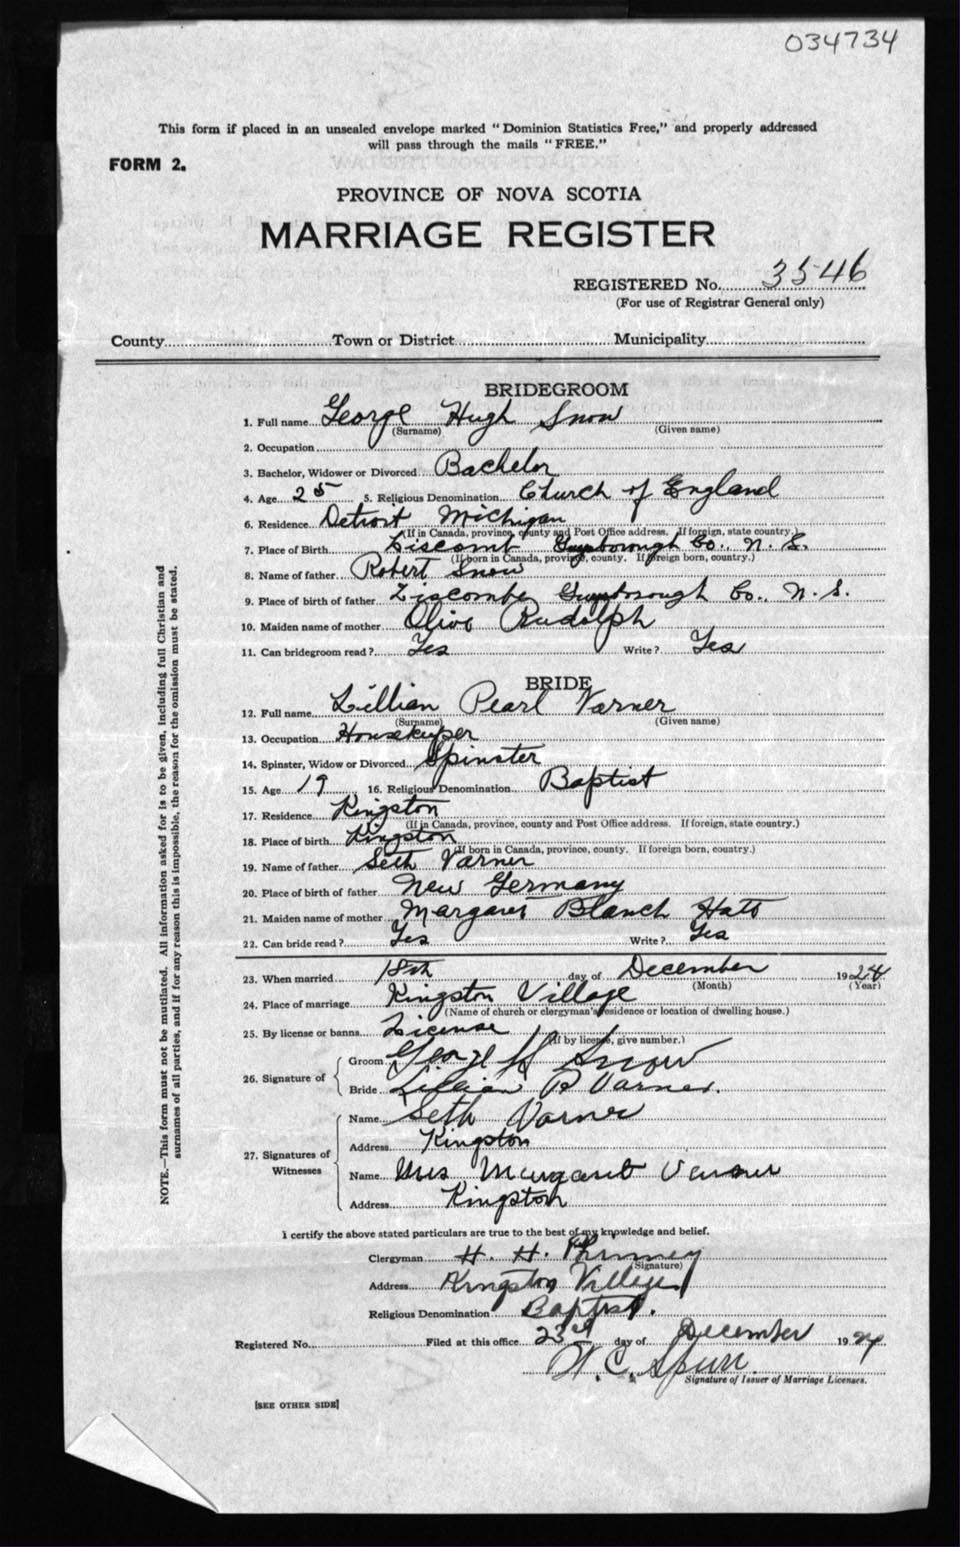 034734
This form if placed in an unsealed envelope marked "Dominion Statistics Free," and properly addressed
will pass through the mails "FREE."
FORM 2.
PROVINCE OF NOVA SCOTIA
MARRIAGE REGISTER
REGISTERED No. 3546
(For use of Registrar General only)
County Town or District Municipality
BRIDEGROOM
1. Full name George Hugh Snow
(Surname) (Given name)
2. Occupation
3. Bachelor, Widower or Divorced Bachelor
4. Age 25 5. Religious Denomination Church of England
6. Residence Detroit Michigan
(If in Canada, province, county and Post Office address. If foreign, state country.)
7. Place of Birth Liscomb Guysborough Co. N. S.
(If born in Canada, province, county. If foreign born, country.)
8. Name of father Robert Snow
9. Place of birth of father Liscombe Guysborough Co. N. S.
10. Maiden name of mother Olive Rudolph
11. Can bridegroom read? Yes Write? Yes
BRIDE
12. Full name Lillian Pearl Varner
(Surname) (Given name)
13. Occupation Housekeeper
14. Spinster, Widow or Divorced Spinster
15. Age 19 16. Religious Denomination Baptist
17. Residence Kingston
(If in Canada, province, county and Post Office address. If foreign, state country.)
18. Place of birth Kingston
(If born in Canada, province, county. If foreign born, country.)
19. Name of father Seth Varner
20. Place of birth of father New Germany
21. Maiden name of mother Margaret Blanch
22. Can bride read? Yes Write? Yes
23. When married 18th day of December 1924
(Month) (Year)
24. Place of marriage Kingston Village
(Name of church or clergyman's residence or location of dwelling house.)
25. By license or banns License
(If by license, give number.)
Groom George H Snow
26. Signature of
Bride Lillian P Varner.
Name Seth Varner
Address Kingston
27. Signatures of Witnesses
Name Mrs Margaret Varner
Address Kingston
I certify the above stated particulars are true to the best of my knowledge and belief.
Clergyman H. H. Phinney
(Signature)
Address Kingston Village
Religious Denomination Baptist.
Registered No. Filed at this office 23rd day of December 1924
W. C. Spurr.
Signature of Issuer of Marriage Licenses.
[SEE OTHER SIDE]
NOTE.—This form must not be mutilated. All information asked for is to be given, including full Christian and
surnames of all parties, and if for any reason this is impossible, the reason for the omission must be stated.